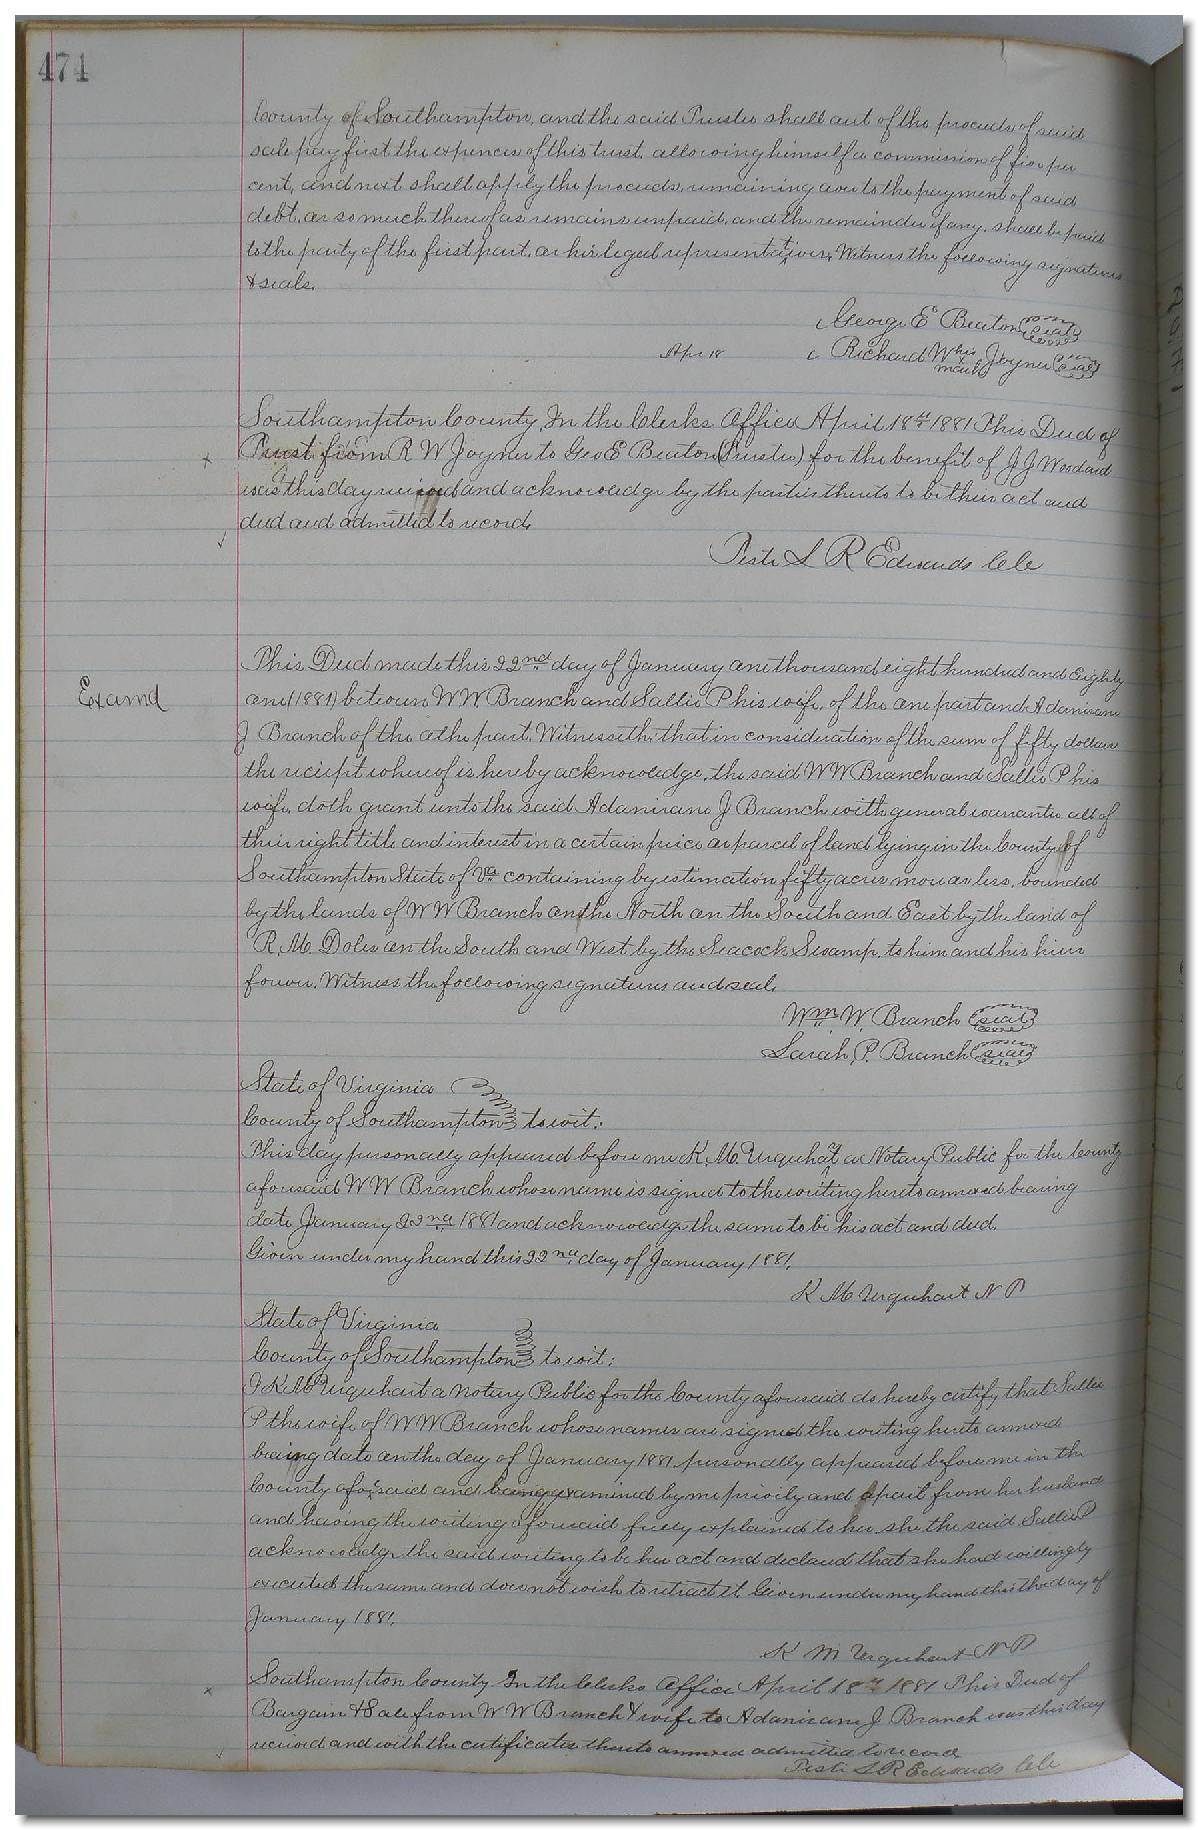 474
County of Southampton, and the said Trustee shall out of the proceeds of said
sale pay first the expences of this trust, allowing himself a commission of five per
cent, and next shall apply the proceeds, remaining over to the payment of said
debt, or so much thereof as remains unpaid, and the remainder if any, shall be paid
to the party of the first part, or his legal representatives, Witness the following signatures
& seals.
George E Beaton seal
Apr 18 Richard W his x mark Joyner seal
Southampton County, In the Clerks Office April 18th 1881 This Deed of
Trust from R W Joyner to Geo E Beaton (Trustee) for the benefit of J J Woodard
was this day received and acknowledge by the parties thereto to be their act and
deed and admitted to record.
Teste L R Edwards CC
This Deed made this 22nd day of January one thousand eight hundred and Eighty
Examd
one (1881) between W W Branch and Sallie P his wife, of the one part and Adoniram
J Branch of the othe part. Witnesseth: that in consideration of the sum of fifty dollars
the reciept whereof is hereby acknowledge, the said W W Branch and Sallie P his
wife, doth grant unto the said Adoniram J Branch with general warrantee all of
their right title and interest in a certain peice or parcel of land lying in the County of
Southampton State of Va containing by estimation fifty acres more or less, bounded
by the lands of W W Branch on the North on the South and East by the land of
R. M. Doles on the South and West by the Seacock Swamp, to him and his heirs
forever. Witness the following signatures and seal.
Wm W. Branch seal
Sarah P. Branch seal
State of Virginia
County of Southampton to wit:
This day personally appeared before me K. M. Urquhart a Notary Public for the County
aforesaid W W Branch whose name is signed to the writing hereto annexed bearing
date January 22nd 1881 and acknowledge the same to be his act and deed.
Given under my hand this 22nd day of January 1881.
K M Urquhart N P
State of Virginia
County of Southampton to wit:
I K M Urquhart a Notary Public for the County aforesaid do hereby certify that Sallie
P the wife of W W Branch whose names are signed the writing hereto annexed
bearing date on the day of January 1881 personally appeared before me in the
County aforesaid and being examined by me privily and apart from her husband
and having the writing aforesaid fully explained to her she the said Sallie P
acknowledge the said writing to be her act and declared that she had willingly
executed the same and does not wish to retract it. Given under my hand this the day of
January 1881.
K M Urquhart N P
Southampton County In the Clerks Office April 18th 1881 This Deed of
Bargain & Sale from W W Branch & wife to Adoniram J Branch was this day
received and with the certificates thereto annexed admitted to record
Teste L R Edwards CC